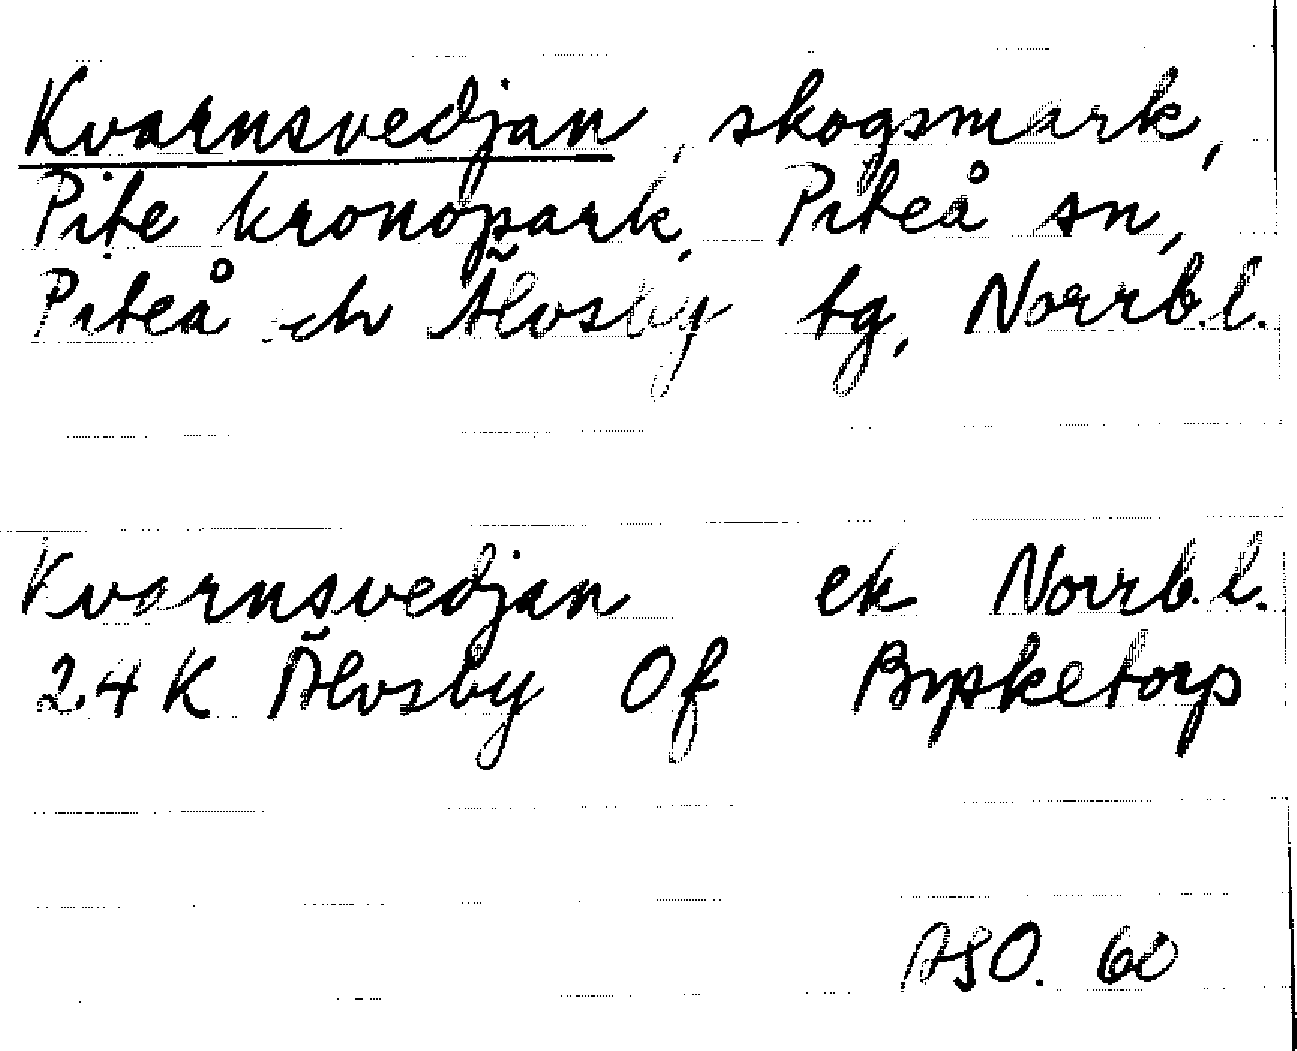 Kvarnsvedjan, skogsmark,
Pite kronopark, Piteå sn,
Piteå och Älvsby tg, Norrb.l.
Kvarnsvedjan ek Norrb.l.
24 K Älvsby Of Bysketorp
60